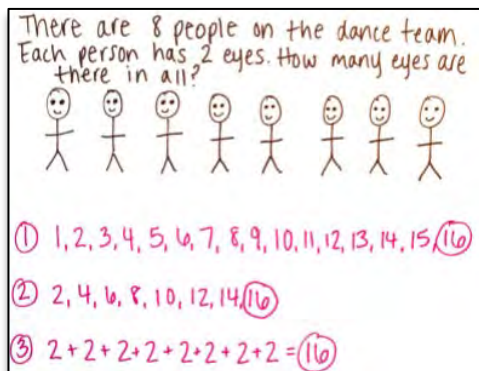 There are 8 people on the dance team.
Each person has 2 eyes. How many eyes are
there in all?
① 1, 2, 3, 4, 5, 6, 7, 8, 9, 10, 11, 12, 13, 14, 15, 16
② 2, 4, 6, 8, 10, 12, 14, 16
③ 2+2+2+2+2+2+2+2=16